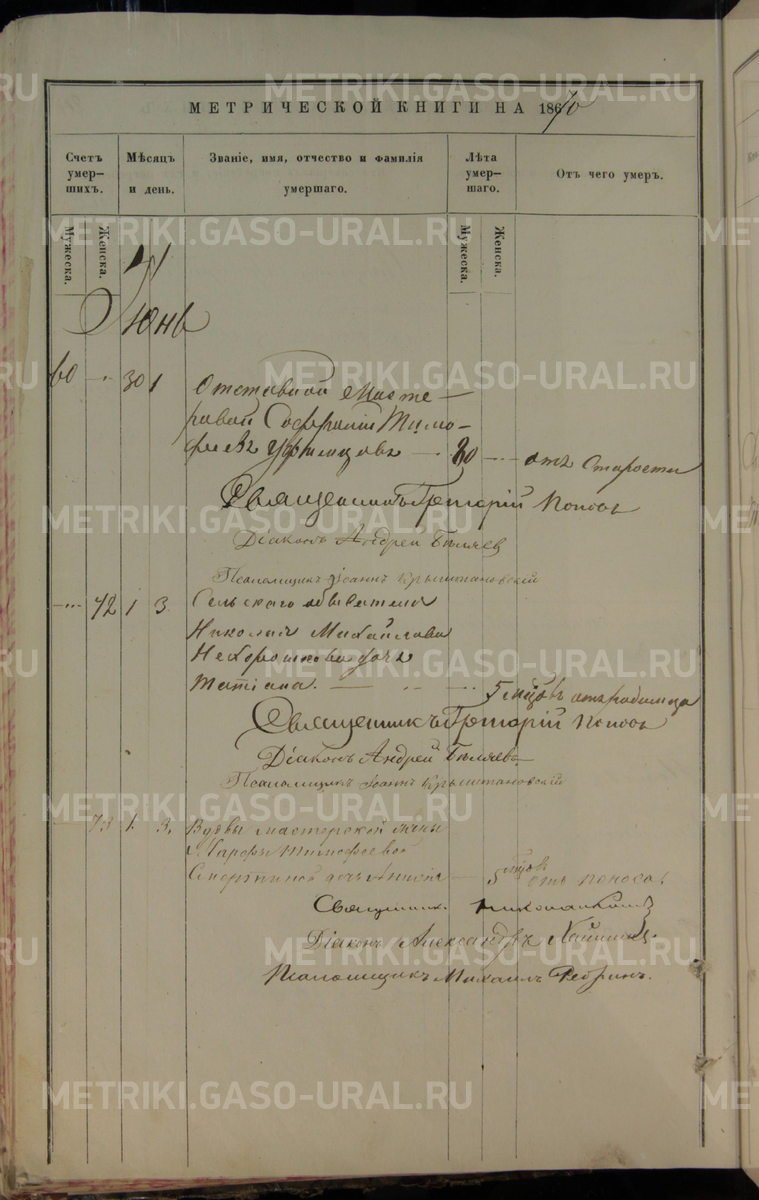 МЕТРИЧЕСКОЙ КНИГИ НА 1870
Счетъ умер- шихъ.
Мѣсяцъ и день.
Званіе, имя, отчество и фамилія умершаго.
Лѣта умер- шаго.
Отъ чего умеръ.
Мужеска. Женска. Мужеска. Женска.
Іюнь
60 30 1 Отставной Масте-
ровой Софроній Тимо-
феевъ 80 отъ Старости
Священникъ Григорій Поповъ
Діаконъ Андрей Бѣляев
Псаломщикъ Іоаннъ Крыштановскій
72 1 3 Сельскаго обывателя
Николая Михайлова
Нехорошкова дочь
Татіана. 5 мцовъ отъ родимца
Священникъ Григорій Поповъ
Діаконъ Андрей Бѣляевъ
Псаломщикъ Іоаннъ Крыштановскій
73 1. 3. Вдовы мастерской жены
Марфы Тимофеевой
дочь 5 мцов отъ поноса
Священник
Діаконъ Александръ
Псаломщикъ Михаилъ Ребринъ.
METRIKI.GASO-URAL.RU